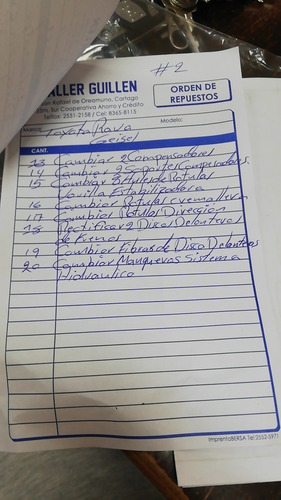 #2
ALLER GUILLEN
Rafael de Oreamuno, Cartago
Sur Cooperativa Ahorro y Crédito
Telfax: 2551-2158 / Cel: 8365-8115
ORDEN DE
REPUESTOS
Marca: Toyota Rava
Modelo:
Geisel
CANT.
13 Cambiar 2 Compensadores
14 Cambiar 2 Soporte Compensadores
15 Cambiar Rotulas
Varilla Estabilizadora
16 Cambiar Rotulas
17 Cambiar Rotulas Dirección
18 Rectificar 2 Disco Delanteros
de Frenos
19 Cambiar Fibras de Disco Delanteros
20 Cambiar Manguevas Sistema
Hidraulico
ImprentaBERSA Tel: 2552-5971